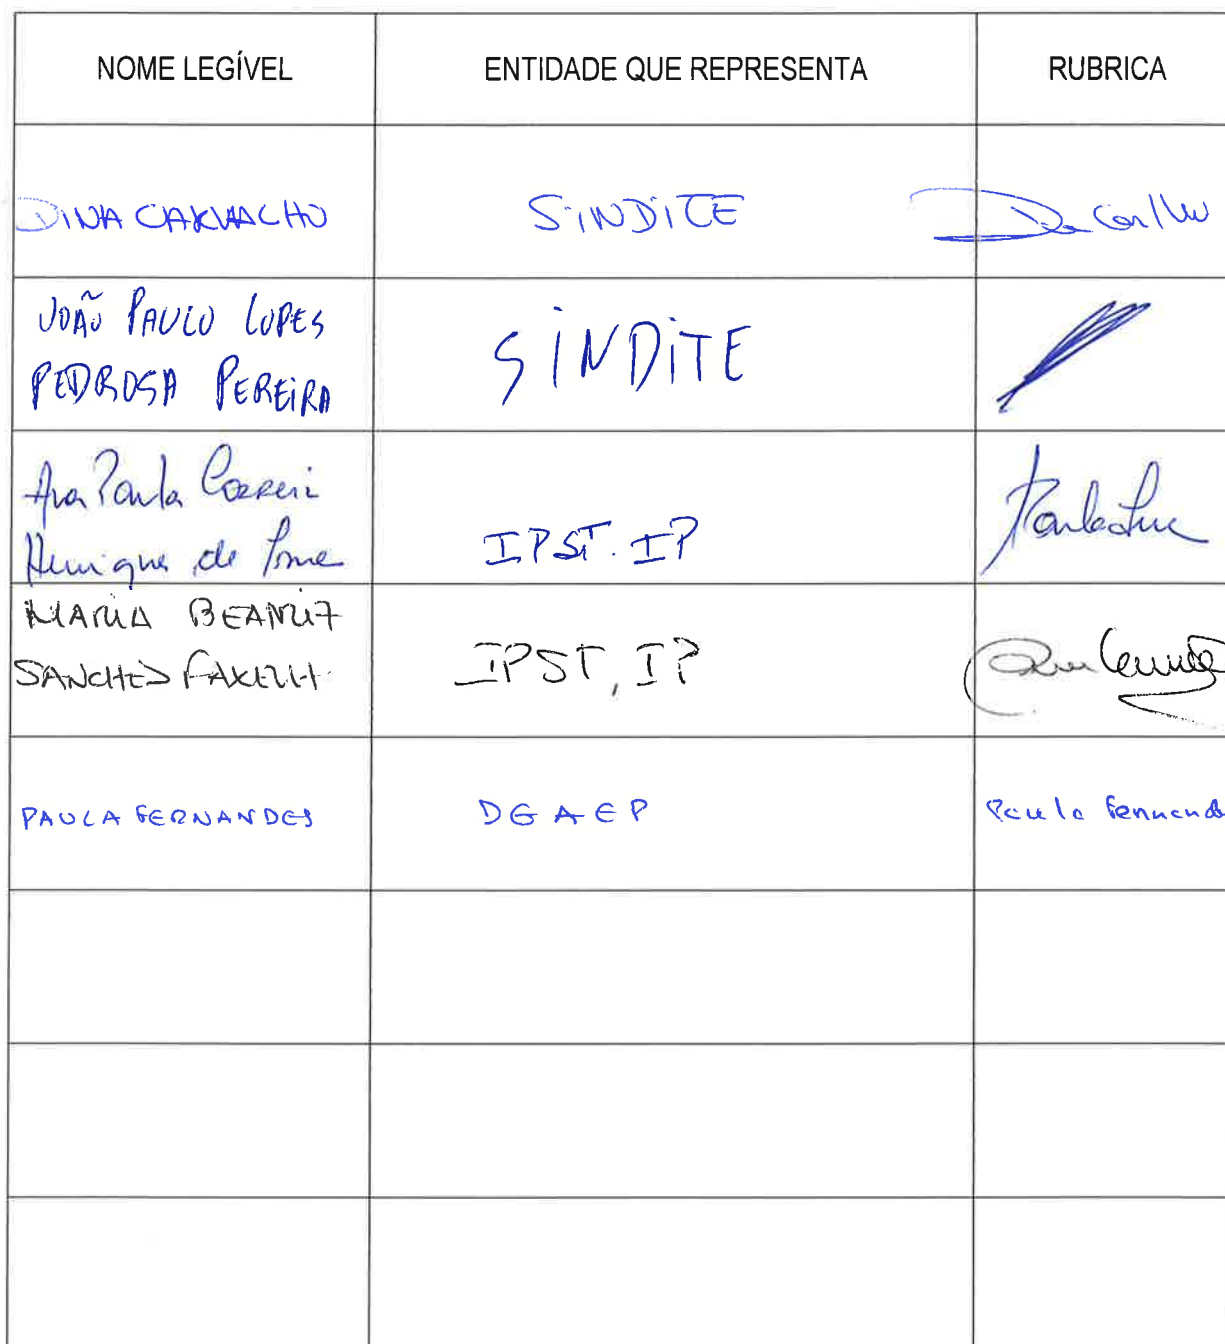 NOME LEGÍVEL ENTIDADE QUE REPRESENTA RUBRICA
DINA CARVALHO SINDITE
JOÃO PAULO LOPES
PEDROSA PEREIRA SINDITE
Ana Paula Correia
Henrique de IPST. IP
MARIA BEATRIZ
SANCHES IPST, IP
PAULA FERNANDES DGAEP Paula Fernandes